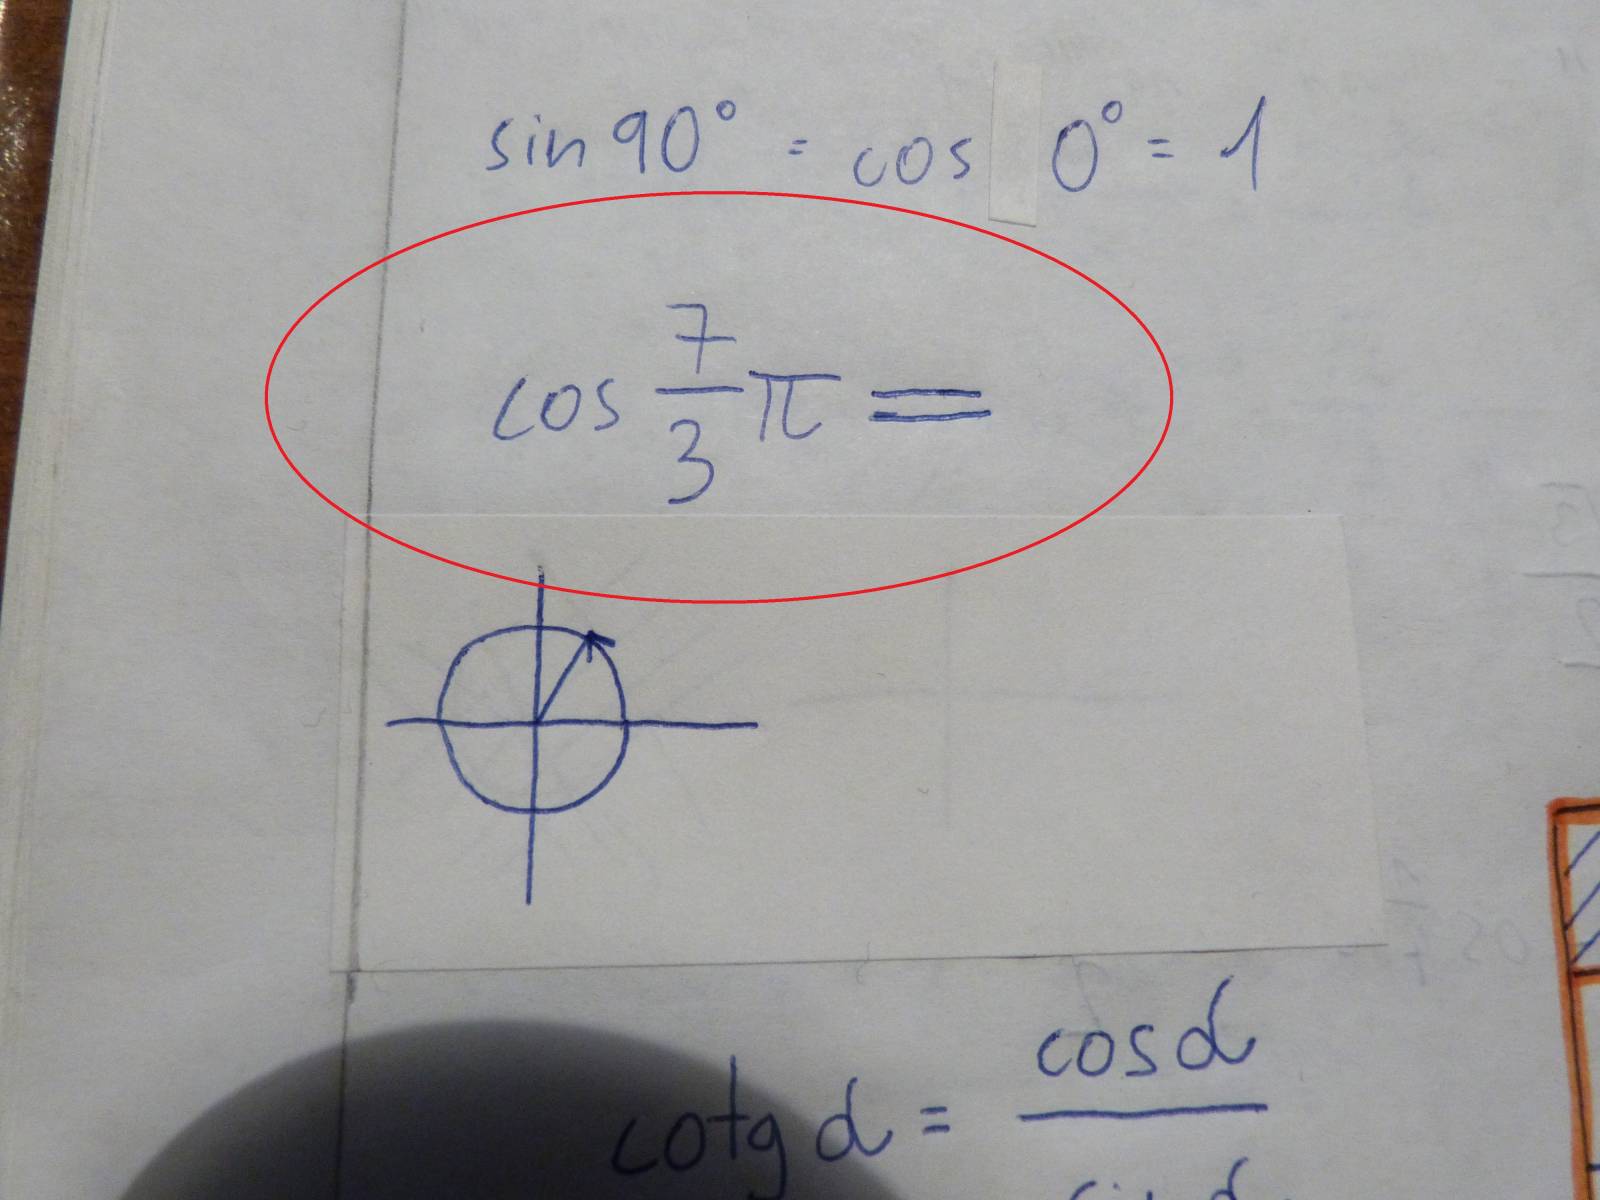 sin 90° = cos 0° = 1
cos 7/3 π =
cotg α = cos α / sin α